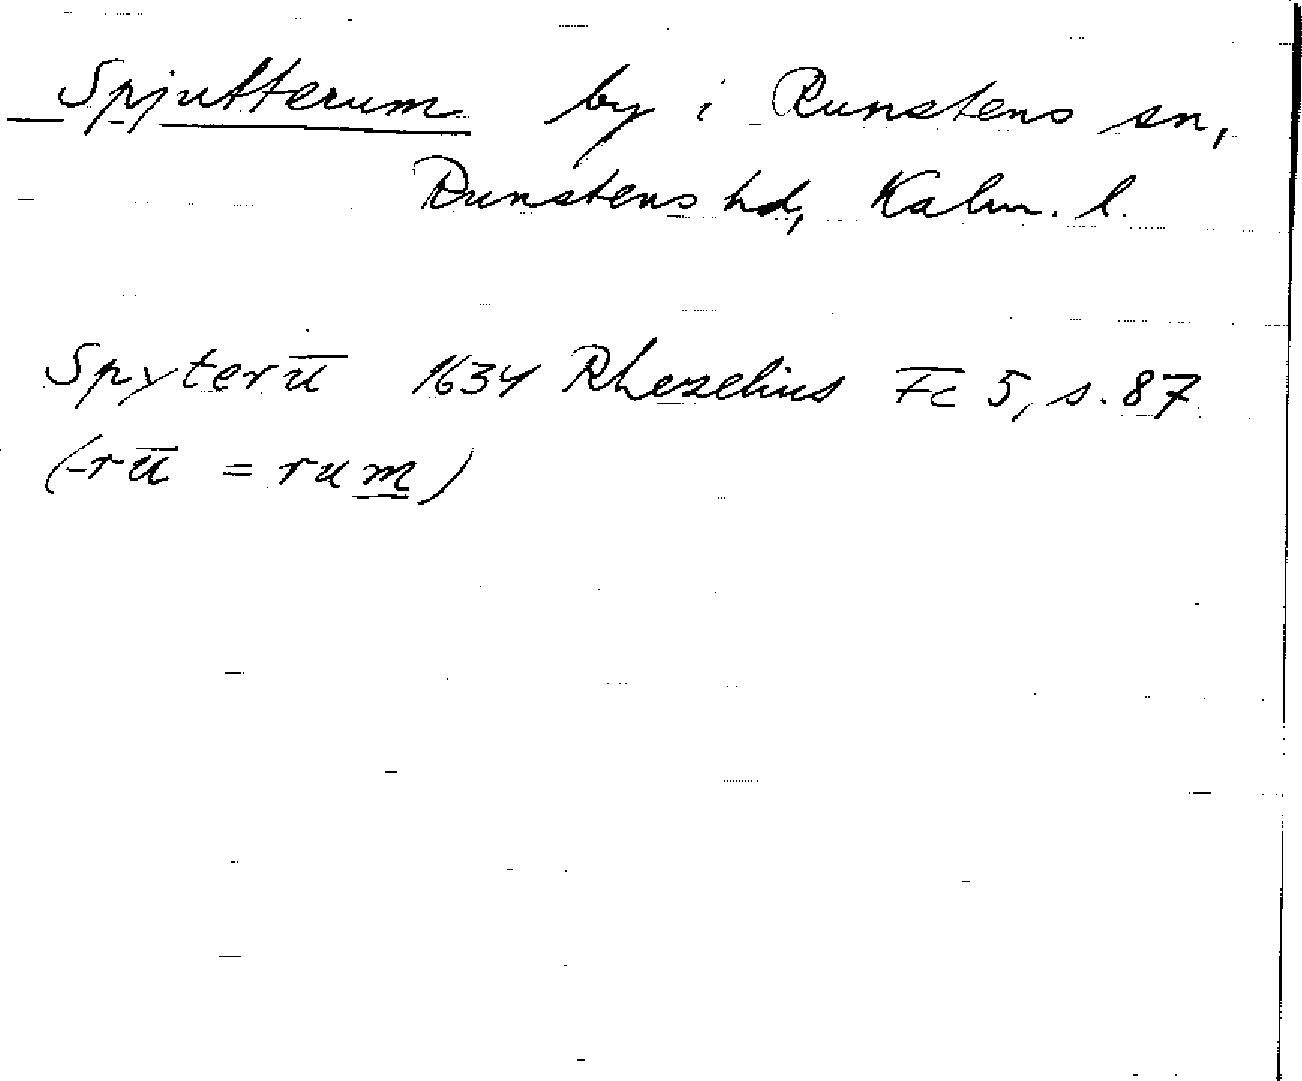 Spjutterum by i Runstens sn,
Runstens hd, Kalm. l.
Spyterū 1634 Rhezelius Fc 5, s. 87
(-rū = rum)